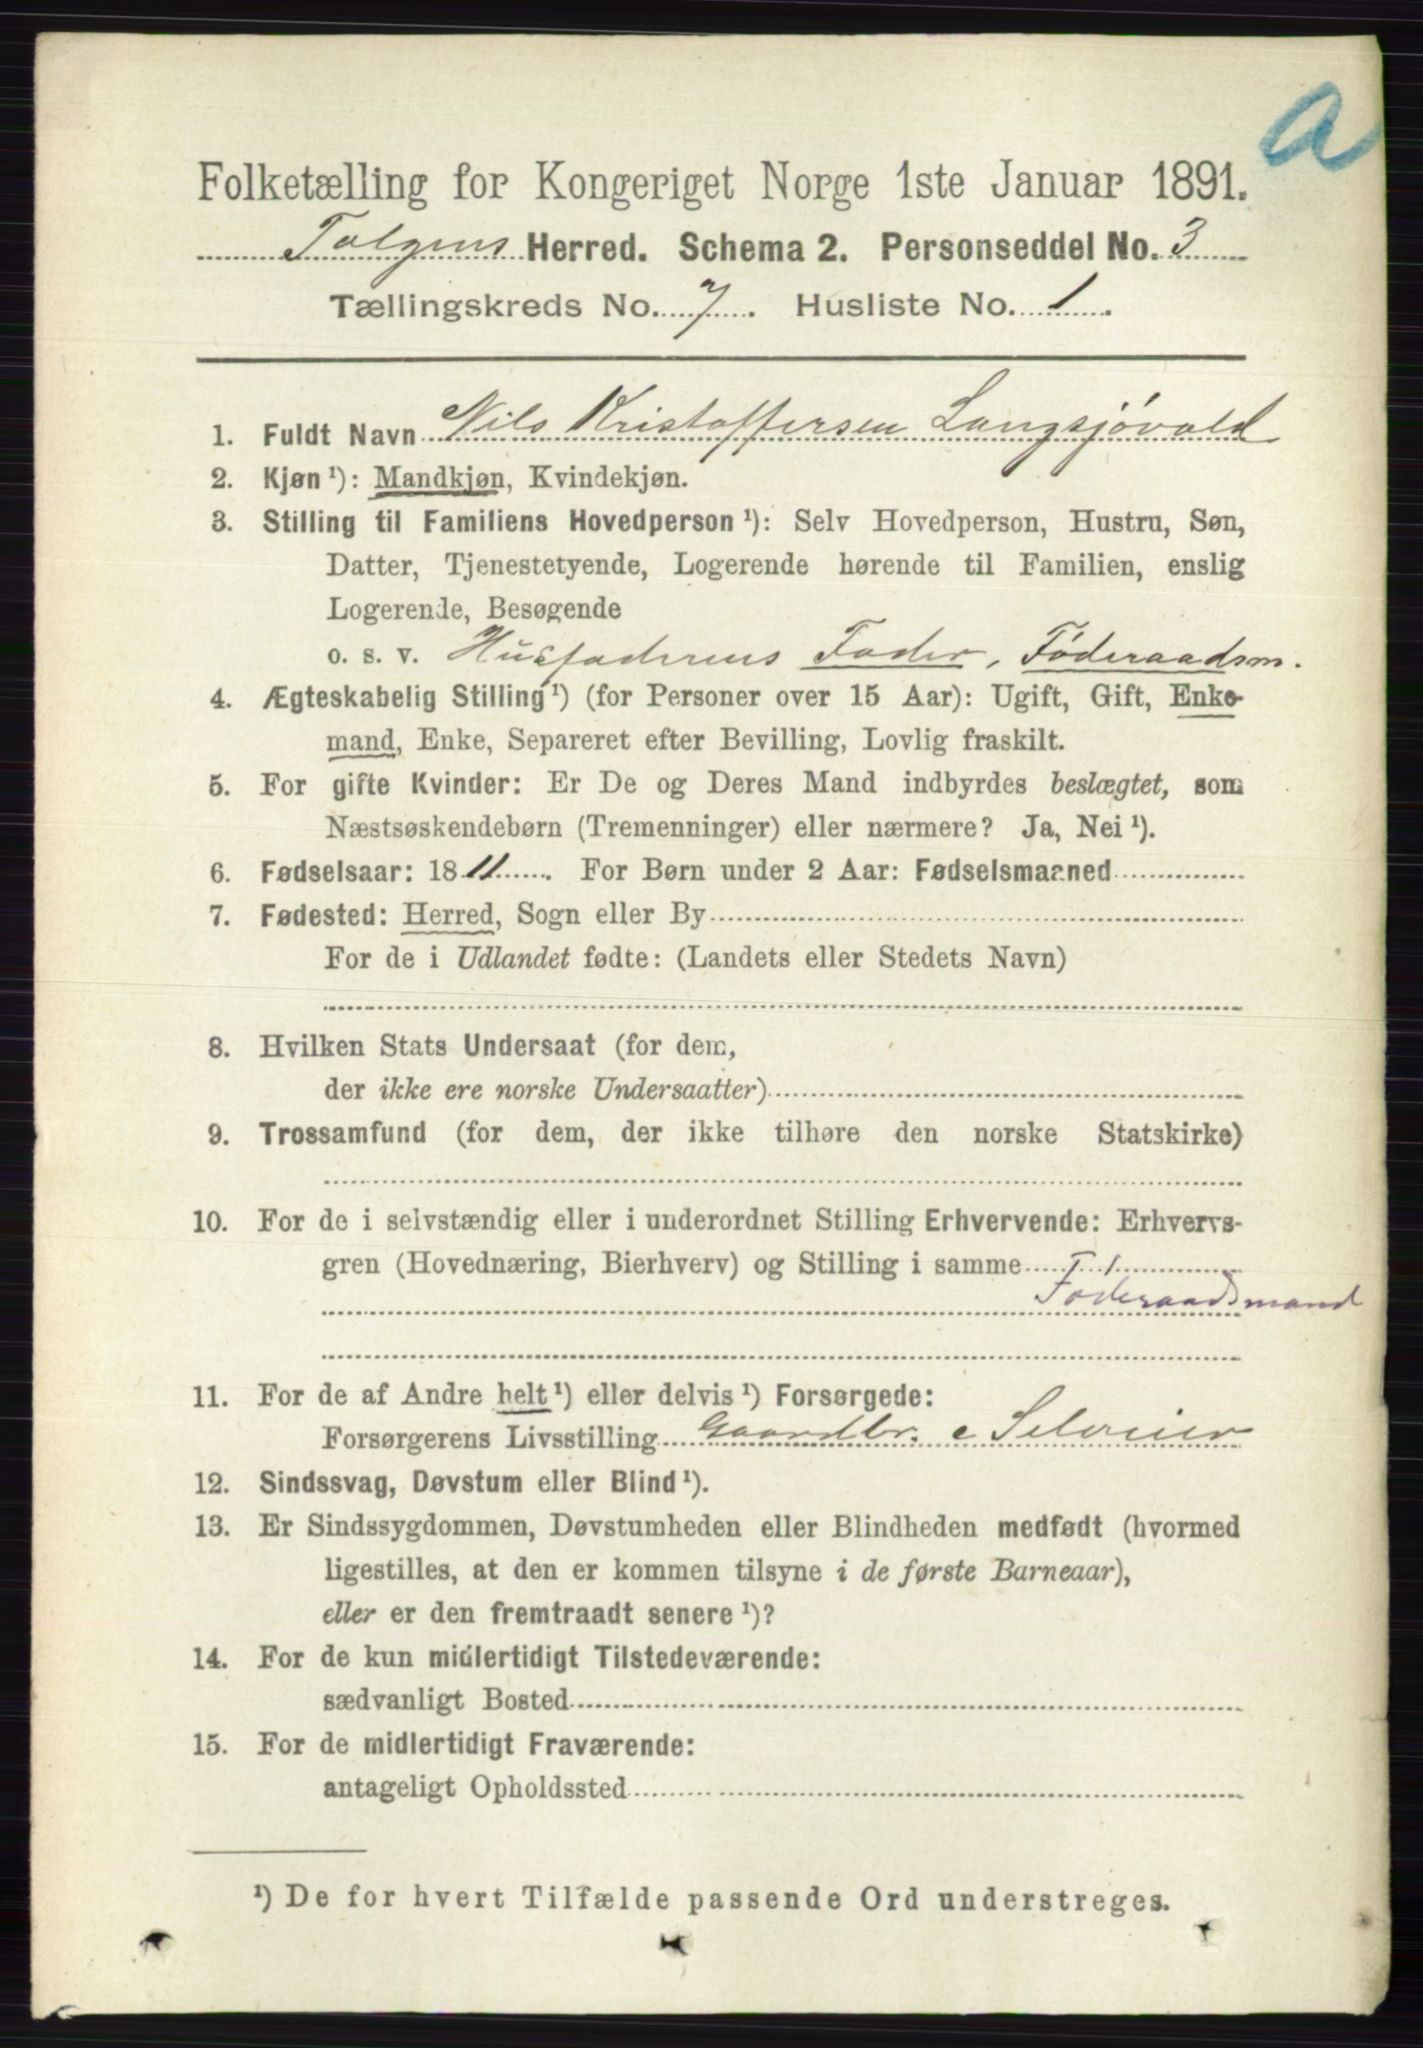 a
Folketælling for Kongeriget Norge 1ste Januar 1891.
Tolgens Herred. Schema 2. Personseddel No. 3
Tællingskreds No. 7. Husliste No. 1.
1. Fuldt Navn Nils Kristoffersen Langsjövold
2. Kjøn ¹): Mandkjøn, Kvindekjøn.
3. Stilling til Familiens Hovedperson ¹): Selv Hovedperson, Hustru, Søn,
Datter, Tjenestetyende, Logerende hørende til Familien, enslig
Logerende, Besøgende
o. s. v. Husfaderens Fader, Föderaadsm.
4. Ægteskabelig Stilling ¹) (for Personer over 15 Aar): Ugift, Gift, Enke-
mand, Enke, Separeret efter Bevilling, Lovlig fraskilt.
5. For gifte Kvinder: Er De og Deres Mand indbyrdes beslægtet, som
Næstsøskendebørn (Tremenninger) eller nærmere? Ja, Nei ¹).
6. Fødselsaar: 1811. For Børn under 2 Aar: Fødselsmaaned
7. Fødested: Herred, Sogn eller By
For de i Udlandet fødte: (Landets eller Stedets Navn)
8. Hvilken Stats Undersaat (for dem,
der ikke ere norske Undersaatter)
9. Trossamfund (for dem, der ikke tilhøre den norske Statskirke)
10. For de i selvstændig eller i underordnet Stilling Erhvervende: Erhvervs-
gren (Hovednæring, Bierhverv) og Stilling i samme
Föderaadsmand
11. For de af Andre helt ¹) eller delvis ¹) Forsørgede:
Forsørgerens Livsstilling Gaardbr. e Seloeier
12. Sindssvag, Døvstum eller Blind ¹).
13. Er Sindssygdommen, Døvstumheden eller Blindheden medfødt (hvormed
ligestilles, at den er kommen tilsyne i de første Barneaar),
eller er den fremtraadt senere ¹)?
14. For de kun midlertidigt Tilstedeværende:
sædvanligt Bosted
15. For de midlertidigt Fraværende:
antageligt Opholdssted
¹) De for hvert Tilfælde passende Ord understreges.